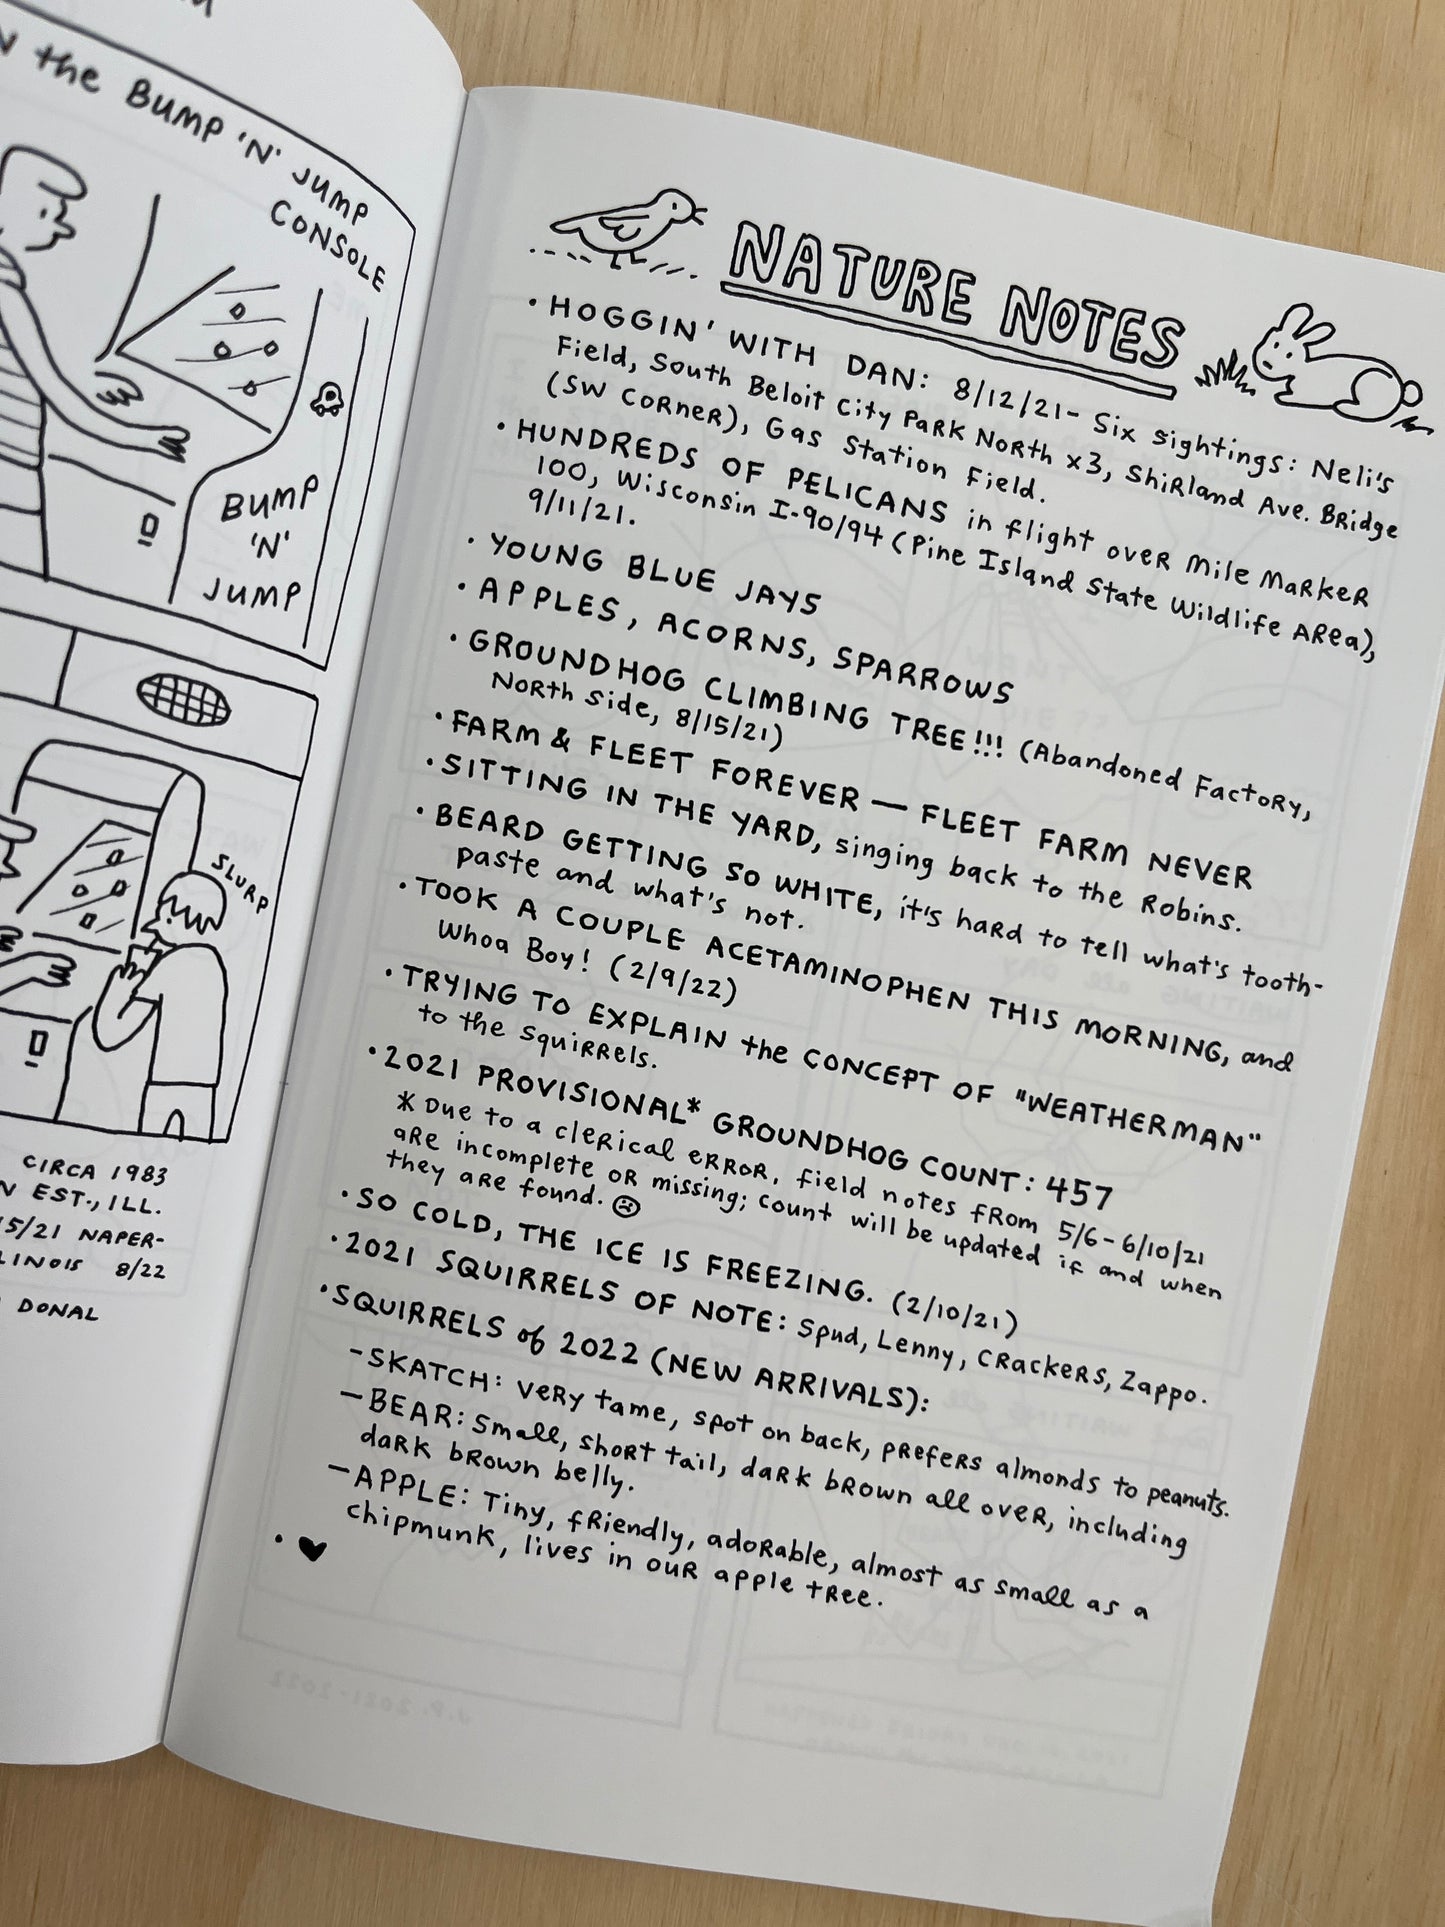 N the BUMP 'N' JUMP
CONSOLE
BUMP
'N'
JUMP
SLURP
CIRCA 1983
N EST., ILL.
15/21 NAPER-
LINOIS 8/22
DONAL
NATURE NOTES
• HOGGIN' WITH DAN: 8/12/21- Six sightings: Neli's
Field, South Beloit City Park North x3, Shirland Ave. Bridge
(SW Corner), Gas Station Field.
• HUNDREDS OF PELICANS in flight over Mile Marker
100, Wisconsin I-90/94 (Pine Island State Wildlife Area),
9/11/21.
• YOUNG BLUE JAYS
• APPLES, ACORNS, SPARROWS
• GROUNDHOG CLIMBING TREE!!! (Abandoned Factory,
North Side, 8/15/21)
• FARM & FLEET FOREVER — FLEET FARM NEVER
• SITTING IN THE YARD, singing back to the Robins.
• BEARD GETTING SO WHITE, it's hard to tell what's tooth-
paste and what's not.
• TOOK A COUPLE ACETAMINOPHEN THIS MORNING, and
Whoa Boy! (2/9/22)
• TRYING TO EXPLAIN the CONCEPT OF "WEATHERMAN"
to the squirrels.
• 2021 PROVISIONAL* GROUNDHOG COUNT: 457
* Due to a clerical error, field notes from 5/6-6/10/21
are incomplete or missing; count will be updated if and when
they are found. ☹
• SO COLD, THE ICE IS FREEZING. (2/10/21)
• 2021 SQUIRRELS OF NOTE: Spud, Lenny, Crackers, Zappo.
• SQUIRRELS of 2022 (NEW ARRIVALS):
-SKATCH: Very tame, spot on back, prefers almonds to peanuts.
-BEAR: Small, short tail, dark brown all over, including
dark brown belly.
-APPLE: Tiny, friendly, adorable, almost as small as a
chipmunk, lives in our apple tree.
• ♥